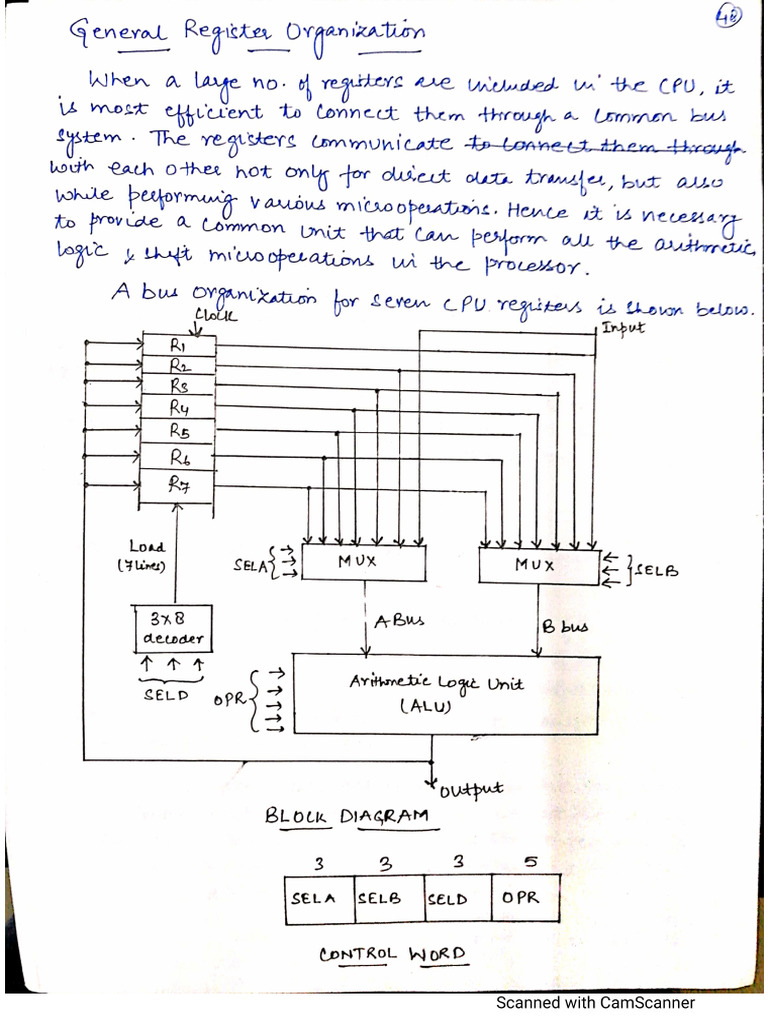 48
General Register Organization
When a large no. of registers are included in the CPU, it
is most efficient to connect them through a common bus
system. The registers communicate to connect them through
with each other not only for direct data transfer, but also
while performing various microoperations. Hence it is necessary
to provide a common unit that can perform all the arithmetic,
logic & shift microoperations in the processor.
A bus organization for seven CPU registers is shown below.
Clock
Input
R1
R2
R3
R4
R5
R6
R7
Load
(7 lines)
SELA
MUX
MUX
SELB
3x8
decoder
A Bus
B bus
SELD
OPR
Arithmetic Logic Unit
(ALU)
Output
BLOCK DIAGRAM
3 3 3 5
SELA SELB SELD OPR
CONTROL WORD
Scanned with CamScanner